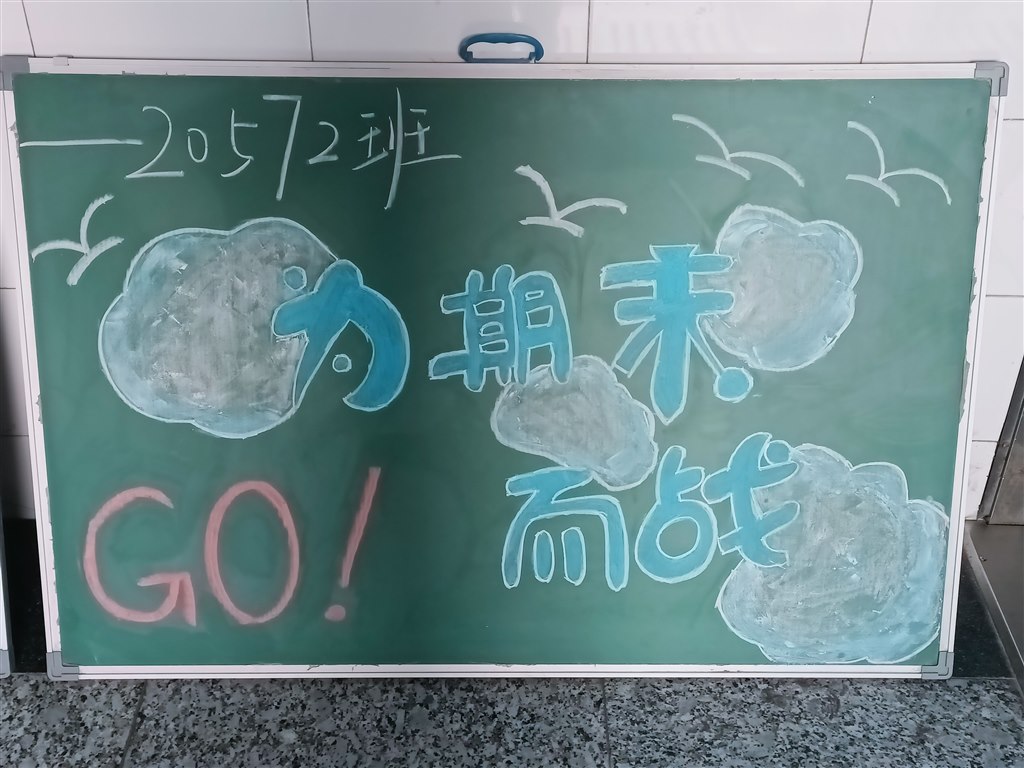 —20572班
为期末
而战
GO!